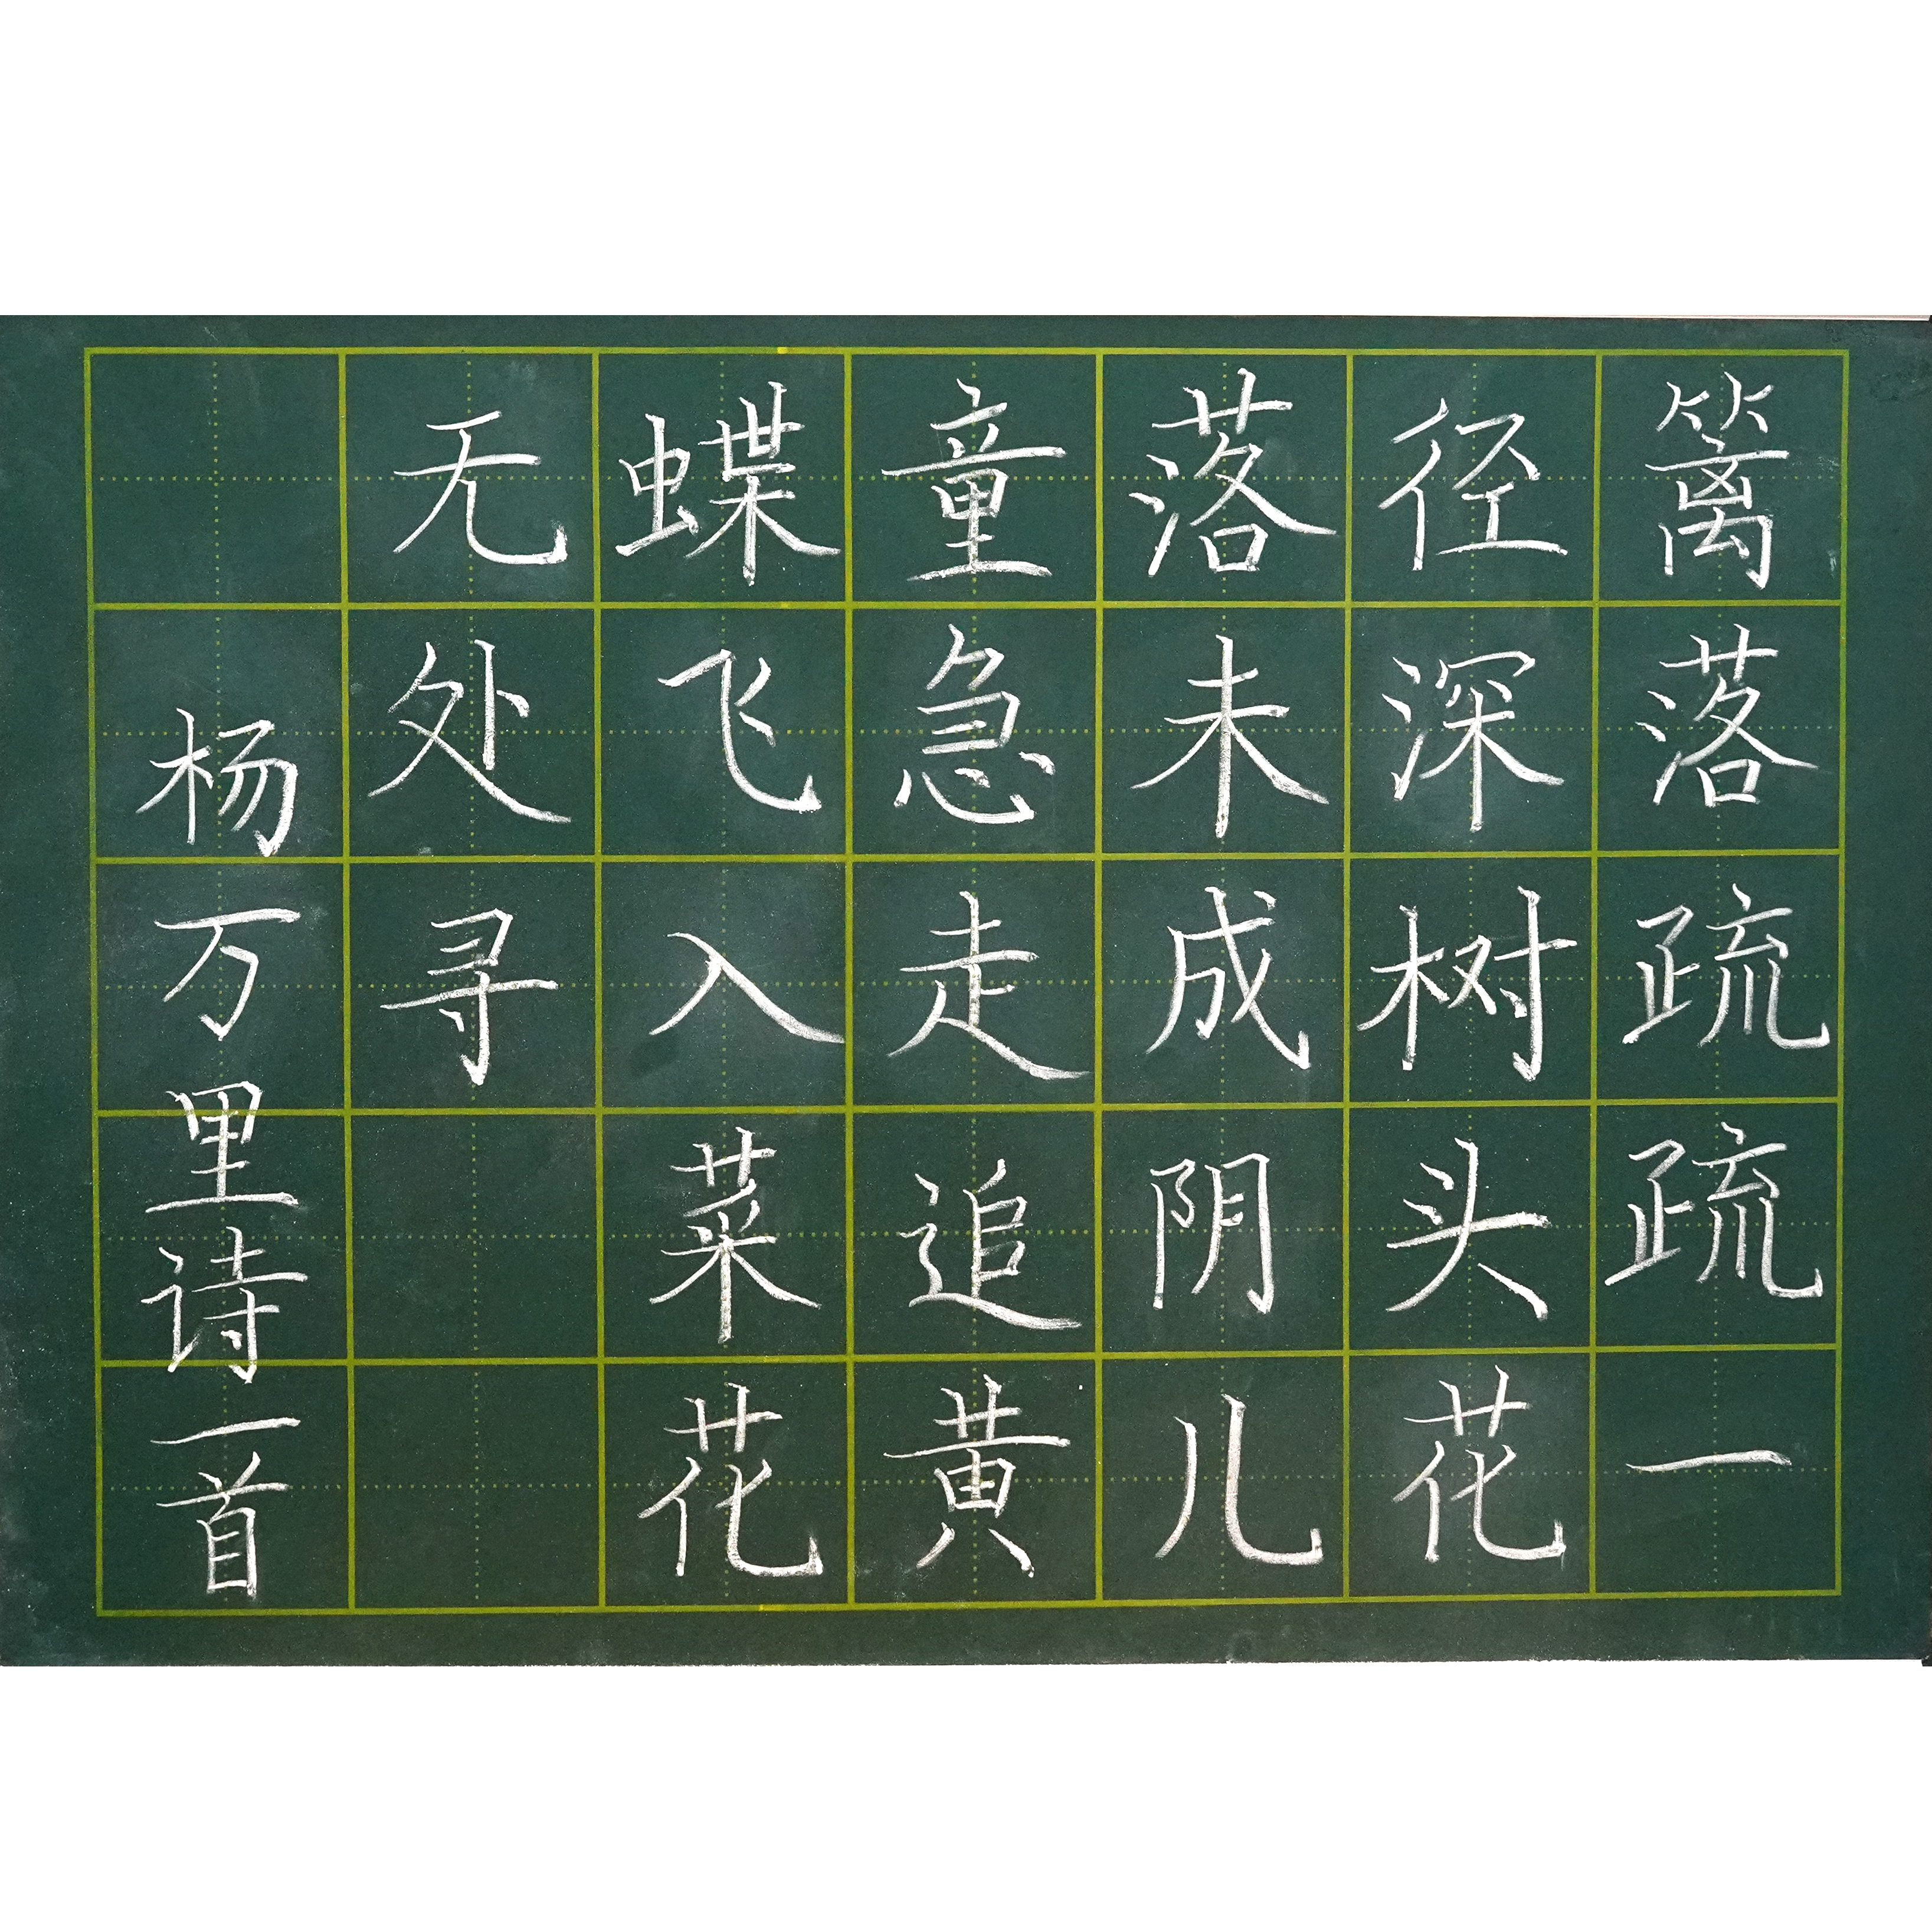 篱落疏疏一
径深树头花
落未成阴儿
童急走追黄
蝶飞入菜花
无处寻
杨万里诗一首